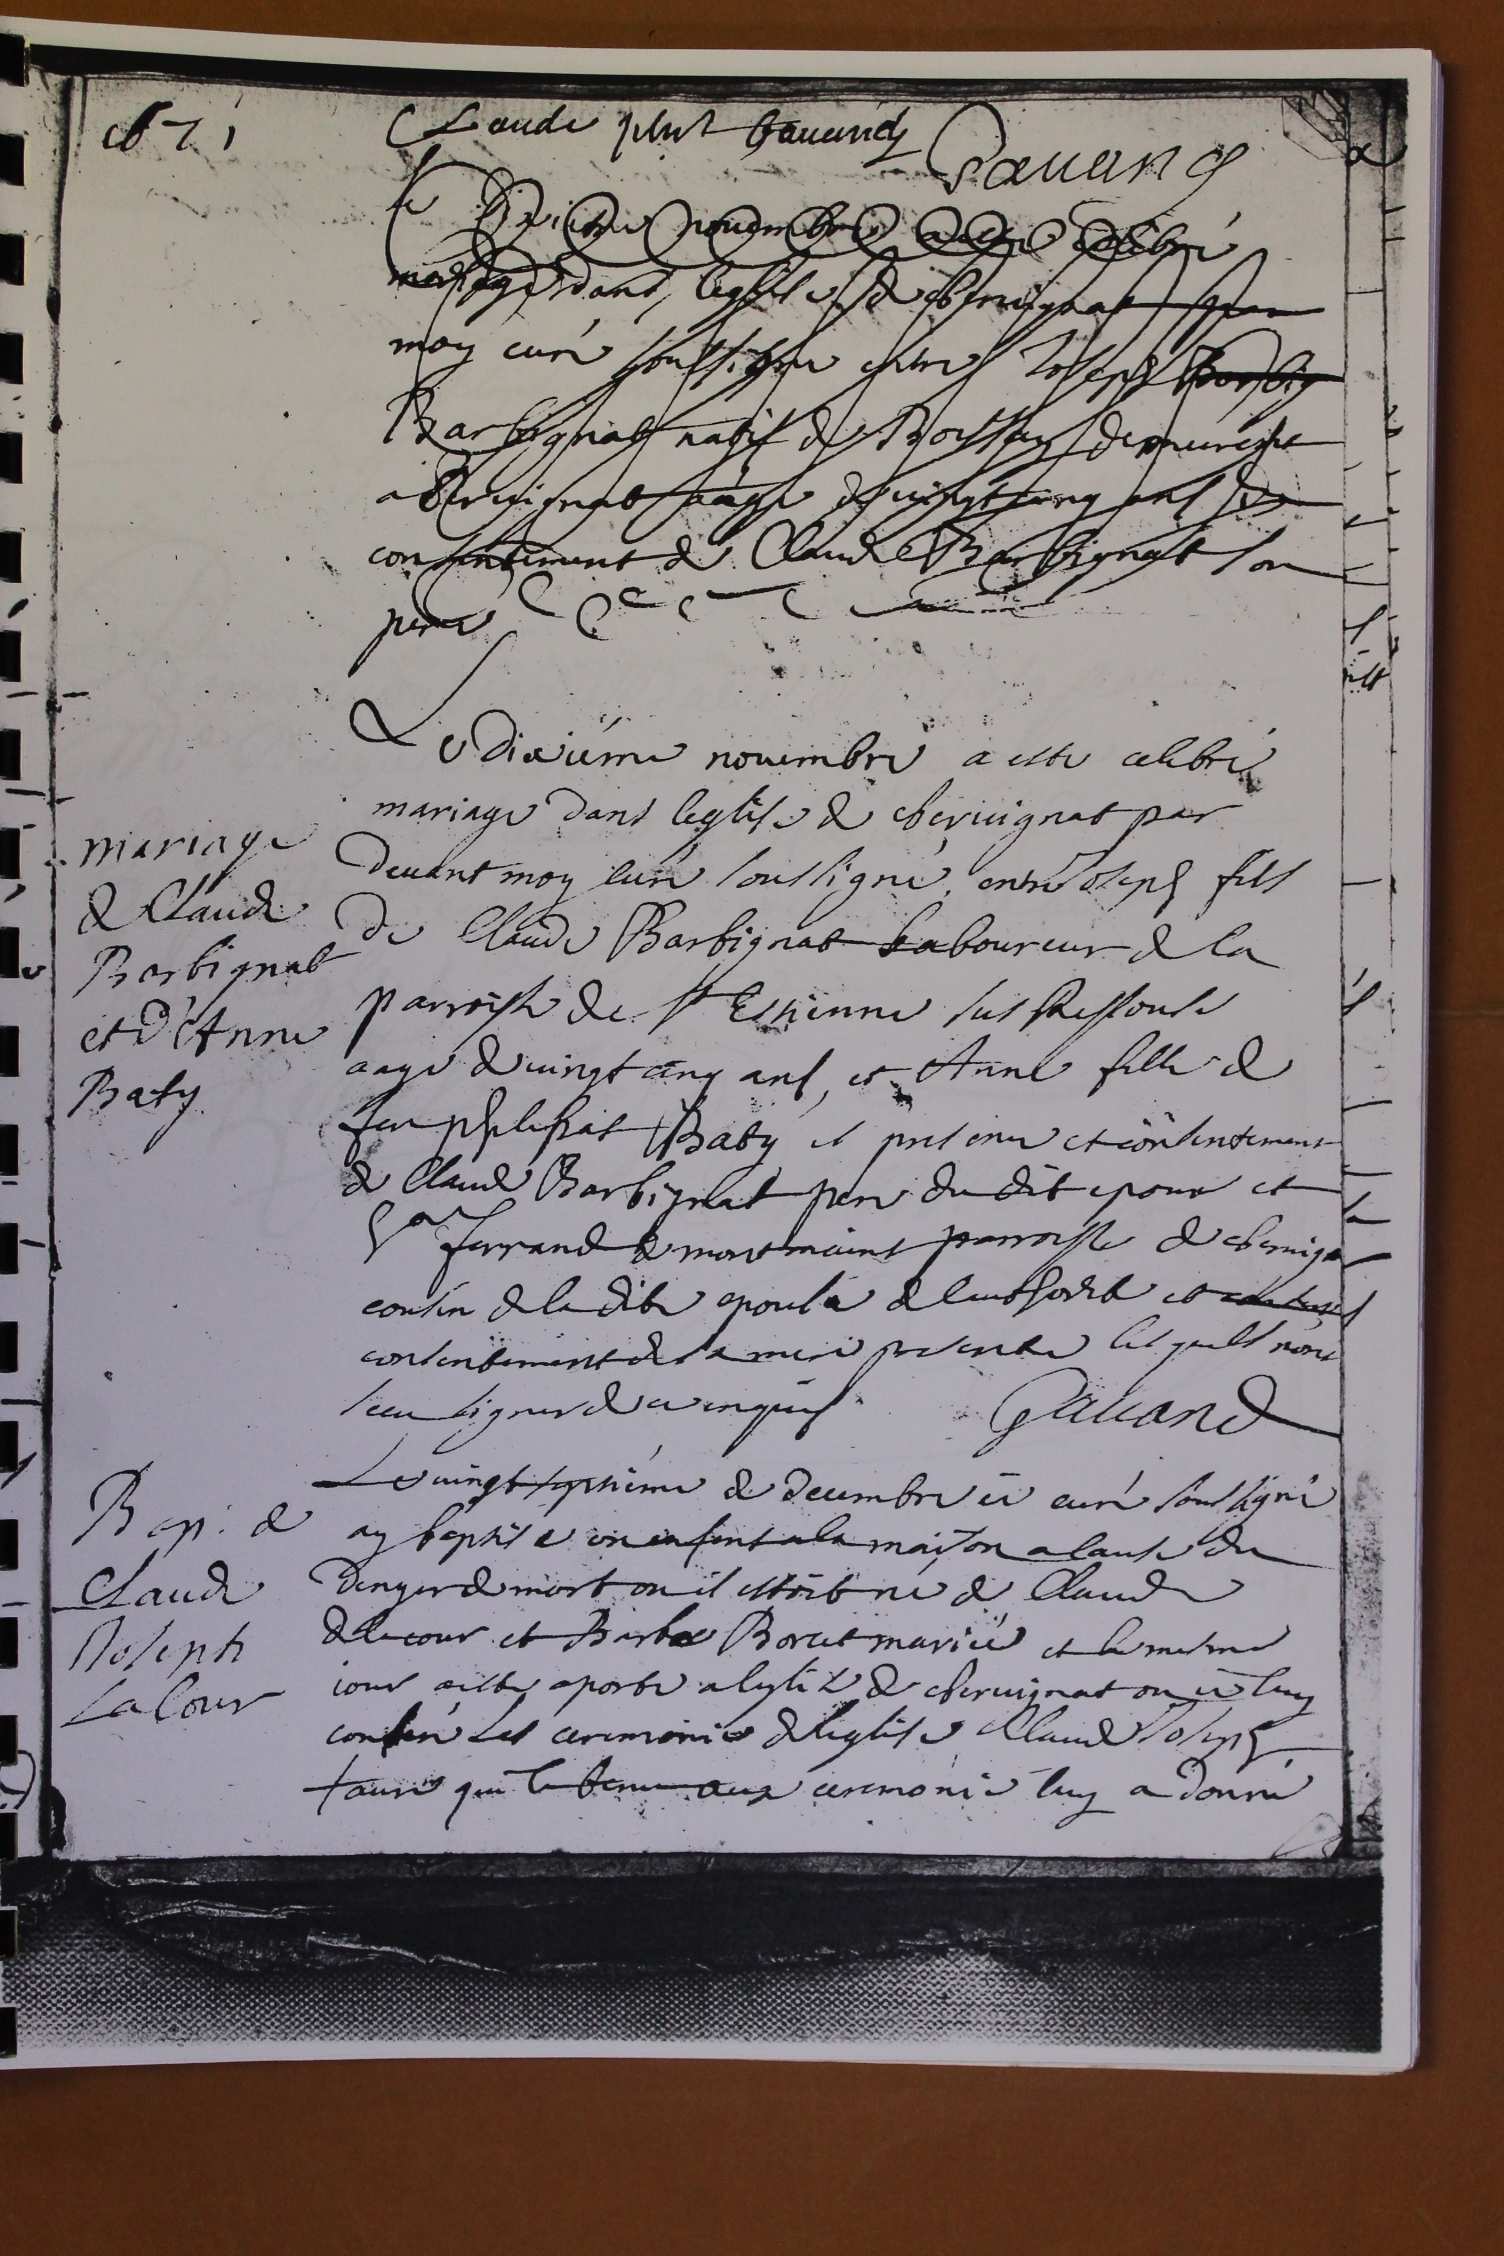 1671
Claude
Gauand
Le Dixieme nouembre a esté celebré
mariage dans leglise de cheruignat
moy curé soussigné entre Joseph
Barbignat natif de demeurant
a Cheruignat aagé de uingt cinq ans
consentement de Claude Barbignat son
pere
Le dixiéme nouembre a esté celebré
mariage dans leglise de cheruignat par
deuant moy curé soussigné, entre Joseph fils
De Claude Barbignat Laboureur de la
parroisse de st Estienne sus Ressouse
aagé de uingt cinq ans, et Anne fille de
feu philibat Baty et presence et consentement
de Claude Barbignat pere du dit epoux et
ferrand de montmaint parroisse de cheruigt
cousin de la dite epouse de lauthorité et
consentement de sa mere presente lesquels nont
sceu signer de ce enquis Gauand
mariage
de Claude
Barbignat
et d'Anne
Baty
Le uingt septiéme de decembre ié curé soussigné
ay baptisé un enfent a la maison a cause du
Denger de mort ou il estoit né de Claude
delacour et Barbe Borcet mariés et le mesme
iour a esté aporté a leglise de cheruignat ou ié luy
conferé les ceremonies de leglise Claude Joseph
tauré qui la tenu aux ceremonie luy a donné
Bap. de
Claude
Joseph
La Cour